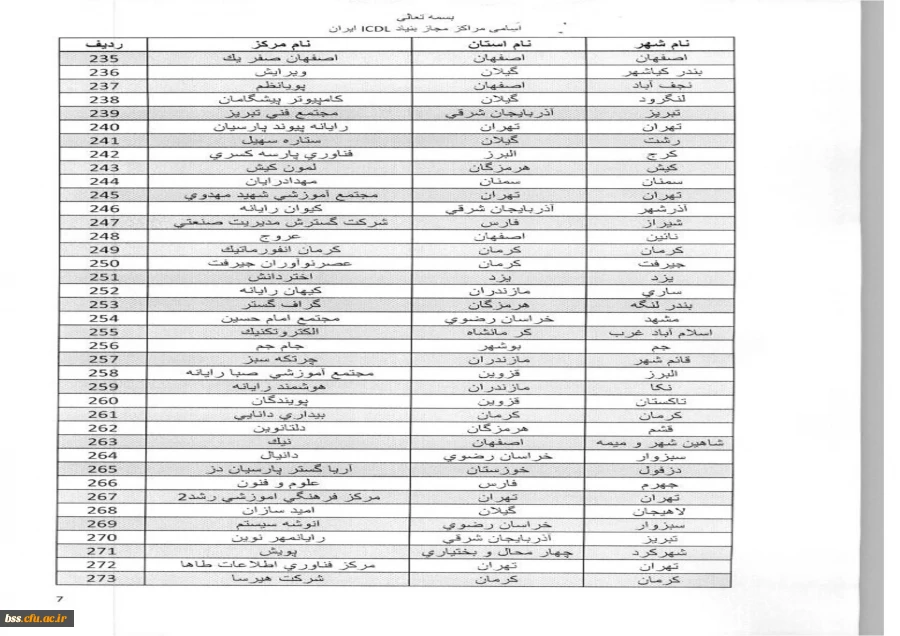 بسمه تعالی
اسامی مراکز مجاز بنیاد ICDL ایران
ردیف نام مرکز نام استان نام شهر
235 اصفهان صفر یك اصفهان اصفهان
236 ویرایش گیلان بندر کیاشهر
237 پویانظم اصفهان نجف آباد
238 کامپیوتر پیشگامان گیلان لنگرود
239 مجتمع فني تبریز آذربایجان شرقي تبریز
240 رایانه پیوند پارسیان تهران تهران
241 ستاره سهیل گیلان رشت
242 فناوري پارسه کسري البرز کرج
243 لمون کیش هرمزگان کیش
244 مهدادرایان سمنان سمنان
245 مجتمع آموزشي شهید مهدوي تهران تهران
246 کیوان رایانه آذربایجان شرقي آذرشهر
247 شرکت گسترش مدیریت صنعتي فارس شیراز
248 عروج اصفهان نائین
249 کرمان انفورماتیك کرمان کرمان
250 عصرنوآوران جیرفت کرمان جیرفت
251 اختردانش یزد یزد
252 کیهان رایانه مازندران ساري
253 گراف گستر هرمزگان بندر لنگه
254 مجتمع امام حسین خراسان رضوي مشهد
255 الکتروتکنیك کرمانشاه اسلام آباد غرب
256 جام جم بوشهر جم
257 چرتکه سبز مازندران قائم شهر
258 مجتمع آموزشي صبا رایانه قزوین البرز
259 هوشمند رایانه مازندران نکا
260 پویندگان قزوین تاکستان
261 بیداري دانایي کرمان کرمان
262 دلتانوین هرمزگان قشم
263 نیك اصفهان شاهین شهر و میمه
264 دانیال خراسان رضوي سبزوار
265 آریا گستر پارسیان دز خوزستان دزفول
266 علوم و فنون فارس جهرم
267 مرکز فرهنگي آموزشي رشد2 تهران تهران
268 امید سازان گیلان لاهیجان
269 انوشه سیستم خراسان رضوي سبزوار
270 رایانمهر نوین آذربایجان شرقي تبریز
271 پویش چهار محال و بختیاري شهرکرد
272 مرکز فناوري اطلاعات طاها تهران تهران
273 شرکت هیرسا کرمان کرمان
7
bss.cfu.ac.ir